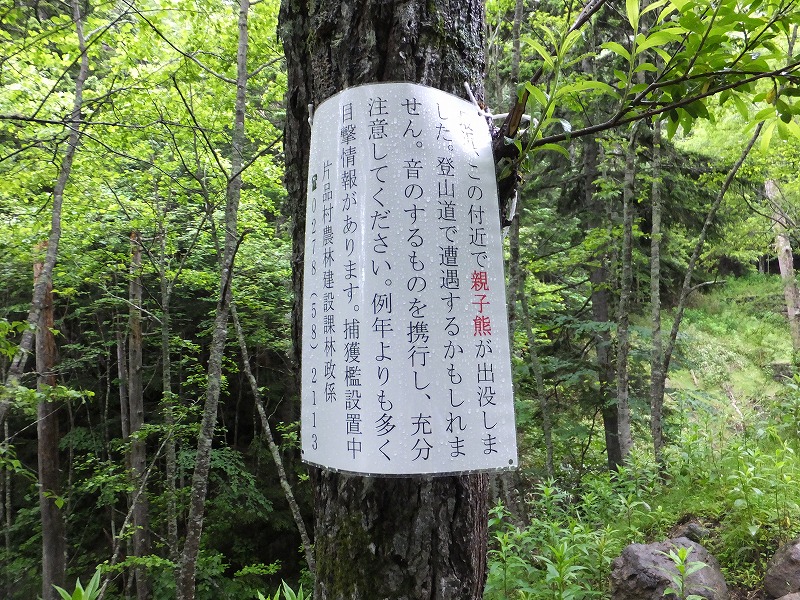 、この付近で親子熊が出没しま
した。登山道で遭遇するかもしれま
せん。音のするものを携行し、充分
注意してください。例年よりも多く
目撃情報があります。捕獲檻設置中
片品村農林建設課林政係
☎0278(58)2113